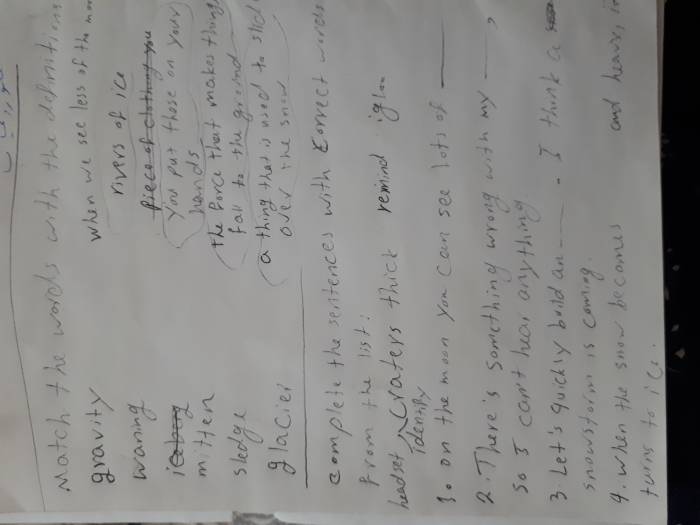 Match the words with the definitions
gravity when we see less of the moo
waning rivers of ice
iceberg piece of clothing you
mitten you put those on your
hands
sledge the force that makes thing
fall to the ground
glacier a thing that is used to slid
over the snow
complete the sentences with correct words
from the list:
headset identify craters thick remind igloo
1. on the moon you can see lots of ——
2. There's something wrong with my ——,
so I can't hear anything
3. Let's quickly build an ——. I think a
snowstorm is coming.
4. when the snow becomes and heavy, i
turns to ice.